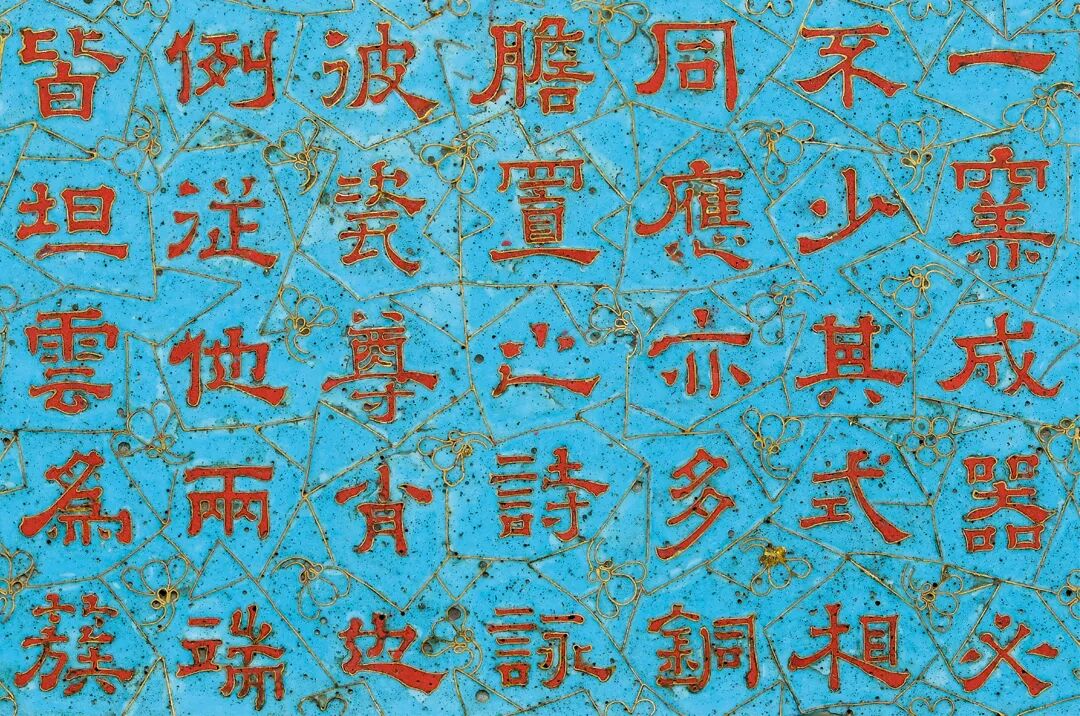 一窯成器必
不少其式相
同應亦多銅
膽置之詩詠
彼瓷尊肖也
例從他兩端
皆坦雲為簇